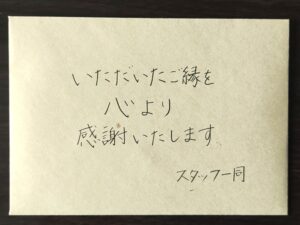 いただいたご縁を
心より
感謝いたします
スタッフ一同